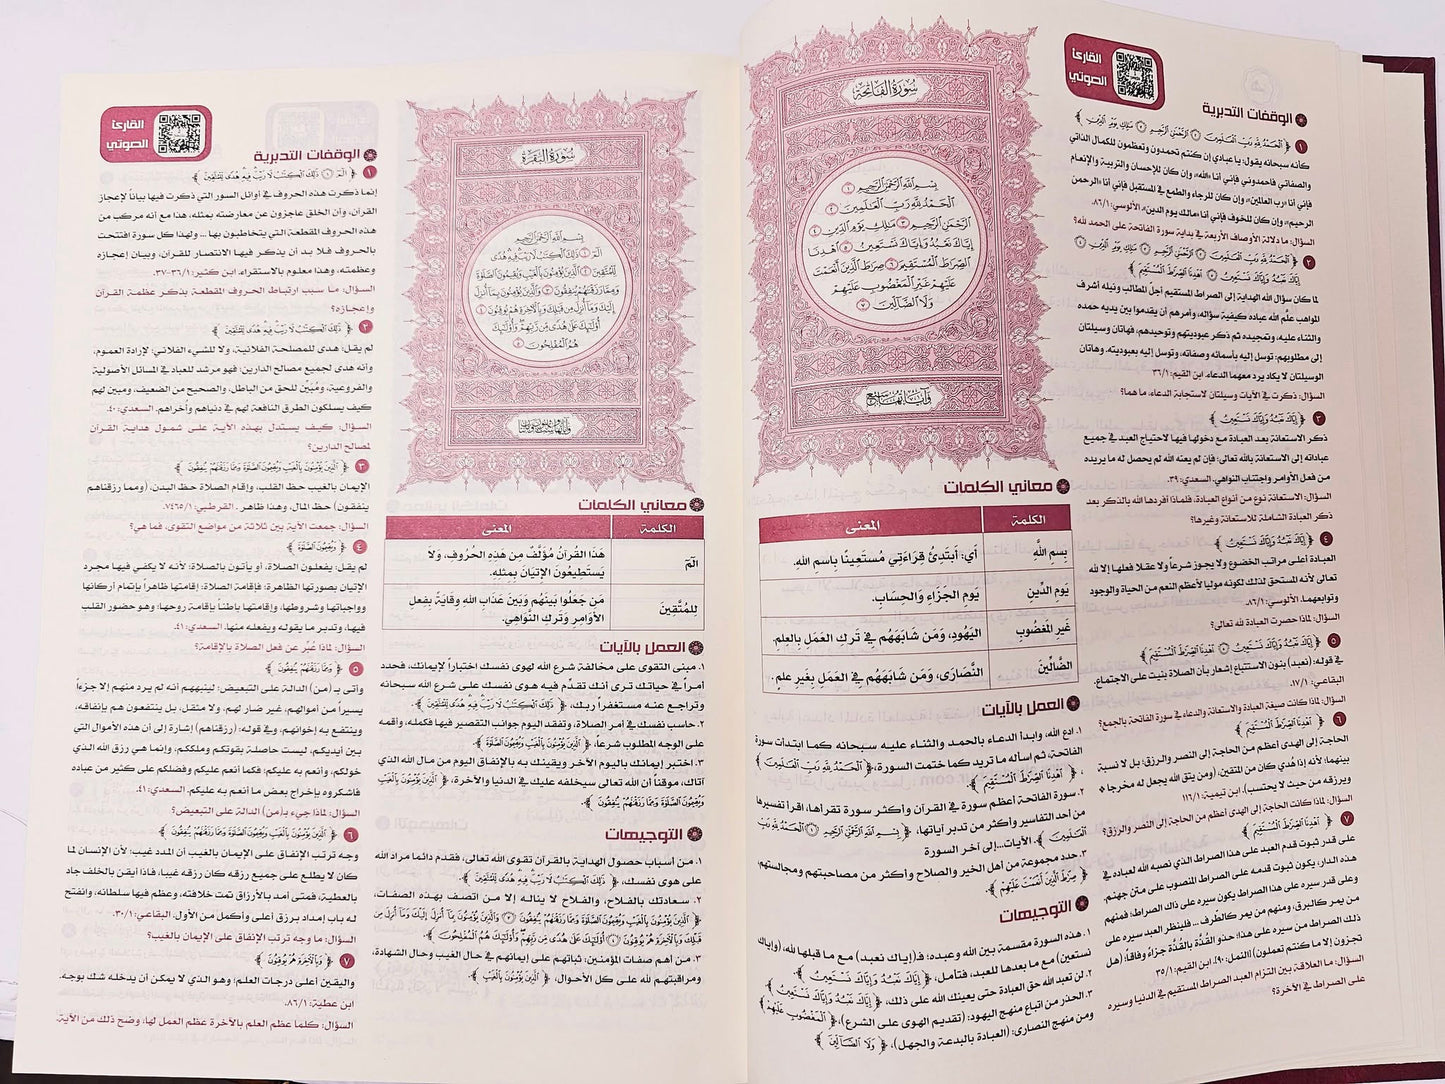 القارئ
الصوتي
الوقفات التدبرية
١ ﴿ ٱلْحَمْدُ لِلَّهِ رَبِّ ٱلْعَـٰلَمِينَ ٱلرَّحْمَـٰنِ ٱلرَّحِيمِ مَـٰلِكِ يَوْمِ ٱلدِّينِ ﴾
كأنه سبحانه يقول: يا عبادي إن كنتم تحمدون وتعظمون للكمال الذاتي
والصفاتي فاحمدوني فإني أنا «الله»، وإن كان للإحسان والتربية والإنعام
فإني أنا «رب العالمين»، وإن كان للرجاء والطمع في المستقبل فإني أنا «الرحمن
الرحيم»، وإن كان للخوف فإني أنا «مالك يوم الدين». الألوسي: ٨٦/١.
السؤال: ما دلالة الأوصاف الأربعة في بداية سورة الفاتحة على الحمد لله؟
٢ ﴿ ٱلْحَمْدُ لِلَّهِ رَبِّ ٱلْعَـٰلَمِينَ ٱلرَّحْمَـٰنِ ٱلرَّحِيمِ مَـٰلِكِ يَوْمِ ٱلدِّينِ
إِيَّاكَ نَعْبُدُ وَإِيَّاكَ نَسْتَعِينُ ٱهْدِنَا ٱلصِّرَٰطَ ٱلْمُسْتَقِيمَ ﴾
لما كان سؤال الله الهداية إلى الصراط المستقيم أجلّ المطالب ونيله أشرف
المواهب علَّم الله عباده كيفية سؤاله، وأمرهم أن يقدموا بين يديه حمده
والثناء عليه، وتمجيده ثم ذكر عبوديتهم وتوحيدهم، فهاتان وسيلتان
إلى مطلوبهم: توسل إليه بأسمائه وصفاته، وتوسل إليه بعبوديته، وهاتان
الوسيلتان لا يكاد يرد معهما الدعاء. ابن القيم: ٣٦/١
السؤال: ذكرت في الآيات وسيلتان لاستجابة الدعاء، ما هما؟
٣ ﴿ إِيَّاكَ نَعْبُدُ وَإِيَّاكَ نَسْتَعِينُ ﴾
ذكر الاستعانة بعد العبادة مع دخولها فيها لاحتياج العبد في جميع
عباداته إلى الاستعانة بالله تعالى؛ فإن لم يعنه الله لم يحصل له ما يريده
من فعل الأوامر واجتناب النواهي. السعدي: ٣٩.
السؤال: الاستعانة نوع من أنواع العبادة، فلماذا أفردها الله بالذكر بعد
ذكر العبادة الشاملة للاستعانة وغيرها؟
٤ ﴿ إِيَّاكَ نَعْبُدُ وَإِيَّاكَ نَسْتَعِينُ ﴾
العبادة أعلى مراتب الخضوع ولا يجوز شرعاً ولا عقلا فعلها إلا لله
تعالى لأنه المستحق لذلك لكونه موليا لأعظم النعم من الحياة والوجود
وتوابعهما. الألوسي: ٨٦/١.
السؤال: لماذا حصرت العبادة لله تعالى؟
٥ ﴿ إِيَّاكَ نَعْبُدُ وَإِيَّاكَ نَسْتَعِينُ ٱهْدِنَا ٱلصِّرَٰطَ ٱلْمُسْتَقِيمَ ﴾
في قوله: (نعبد) بنون الاستتباع إشعار بأن الصلاة بنيت على الاجتماع.
البقاعي: ١٧/١.
السؤال: لماذا كانت صيغة العبادة والاستعانة والدعاء في سورة الفاتحة بالجمع؟
٦ ﴿ ٱهْدِنَا ٱلصِّرَٰطَ ٱلْمُسْتَقِيمَ ﴾
الحاجة إلى الهدى أعظم من الحاجة إلى النصر والرزق؛ بل لا نسبة
بينهما؛ لأنه إذا هُدي كان من المتقين، (ومن يتق الله يجعل له مخرجا *
ويرزقه من حيث لا يحتسب). ابن تيمية: ١١٦/١
السؤال: لماذا كانت الحاجة إلى الهدى أعظم من الحاجة إلى النصر والرزق؟
٧ ﴿ ٱهْدِنَا ٱلصِّرَٰطَ ٱلْمُسْتَقِيمَ ﴾
على قدر ثبوت قدم العبد على هذا الصراط الذي نصبه الله لعباده في
هذه الدار، يكون ثبوت قدمه على الصراط المنصوب على متن جهنم،
وعلى قدر سيره على هذا الصراط يكون سيره على ذاك الصراط؛ فمنهم
من يمر كالبرق، ومنهم من يمر كالطّرف ... فلينظر العبد سيره على
ذلك الصراط من سيره على هذا؛ حذو القُذَّة بالقُذَّة جزاءً وفاقاً؛ (هل
تجزون إلا ما كنتم تعملون) [النمل: ٩٠]. ابن القيم: ٣٥/١
السؤال: ما العلاقة بين التزام العبد الصراط المستقيم في الدنيا وسيره
على الصراط في الآخرة؟
سُورَةُ الفَاتِحَةِ
بِسْمِ ٱللَّهِ ٱلرَّحْمَـٰنِ ٱلرَّحِيمِ ١
ٱلْحَمْدُ لِلَّهِ رَبِّ ٱلْعَـٰلَمِينَ ٢
ٱلرَّحْمَـٰنِ ٱلرَّحِيمِ ٣ مَـٰلِكِ يَوْمِ ٱلدِّينِ ٤
إِيَّاكَ نَعْبُدُ وَإِيَّاكَ نَسْتَعِينُ ٥ ٱهْدِنَا
ٱلصِّرَٰطَ ٱلْمُسْتَقِيمَ ٦ صِرَٰطَ ٱلَّذِينَ أَنْعَمْتَ
عَلَيْهِمْ غَيْرِ ٱلْمَغْضُوبِ عَلَيْهِمْ
وَلَا ٱلضَّآلِّينَ ٧
وَآيَاتُهَا سَبْعٌ
معاني الكلمات
الكلمة المعنى
بِسْمِ اللَّهِ أَي: أَبتَدِئُ قِرَاءَتِي مُستَعِينًا بِاسمِ اللهِ.
يَومِ الدِّينِ يَومِ الجَزَاءِ وَالحِسَابِ.
غَيرِ المَغضُوبِ اليَهُودِ، وَمَن شَابَهَهُم فِي تَركِ العَمَلِ بِالعِلمِ.
الضَّالِّينَ النَّصَارَى، وَمَن شَابَهَهُم فِي العَمَلِ بِغَيرِ عِلمٍ.
العمل بالآيات
١. ادع الله، وابدأ الدعاء بالحمد والثناء عليه سبحانه كما ابتدأت سورة
الفاتحة، ثم اسأله ما تريد كما ختمت السورة، ﴿ ٱلْحَمْدُ لِلَّهِ رَبِّ ٱلْعَـٰلَمِينَ ﴾
، ﴿ ٱهْدِنَا ٱلصِّرَٰطَ ٱلْمُسْتَقِيمَ ﴾.
٢. سورة الفاتحة أعظم سورة في القرآن وأكثر سورة تقرأها، اقرأ تفسيرها
من أحد التفاسير وأكثر من تدبر آياتها، ﴿ بِسْمِ ٱللَّهِ ٱلرَّحْمَـٰنِ ٱلرَّحِيمِ ١ ٱلْحَمْدُ لِلَّهِ رَبِّ
ٱلْعَـٰلَمِينَ ﴾. الآيات...إلى آخر السورة
٣. حدد مجموعة من أهل الخير والصلاح وأكثر من مصاحبتهم ومجالستهم،
﴿ صِرَٰطَ ٱلَّذِينَ أَنْعَمْتَ عَلَيْهِمْ ﴾
التوجيهات
١. هذه السورة مقسمة بين الله وعبده؛ فـ(إياك نعبد) مع ما قبلها لله، (وإياك
نستعين) مع ما بعدها للعبد، فتأمل، ﴿ إِيَّاكَ نَعْبُدُ وَإِيَّاكَ نَسْتَعِينُ ﴾
٢. لن تعبد الله حق العبادة حتى يعينك الله على ذلك، ﴿ إِيَّاكَ نَعْبُدُ وَإِيَّاكَ نَسْتَعِينُ ﴾
٣. الحذر من اتباع منهج اليهود: (تقديم الهوى على الشرع)، ﴿ ٱلْمَغْضُوبِ عَلَيْهِمْ ﴾
ومن منهج النصارى: (العبادة بالبدعة والجهل)، ﴿ وَلَا ٱلضَّآلِّينَ ﴾
سُورَةُ البَقَرَةِ
بِسْمِ ٱللَّهِ ٱلرَّحْمَـٰنِ ٱلرَّحِيمِ
الٓمٓ ١ ذَٰلِكَ ٱلْكِتَـٰبُ لَا رَيْبَ فِيهِ هُدًى
لِّلْمُتَّقِينَ ٢ ٱلَّذِينَ يُؤْمِنُونَ بِٱلْغَيْبِ وَيُقِيمُونَ ٱلصَّلَوٰةَ
وَمِمَّا رَزَقْنَـٰهُمْ يُنفِقُونَ ٣ وَٱلَّذِينَ يُؤْمِنُونَ بِمَآ أُنزِلَ
إِلَيْكَ وَمَآ أُنزِلَ مِن قَبْلِكَ وَبِٱلْـَٔاخِرَةِ هُمْ يُوقِنُونَ ٤
أُو۟لَـٰٓئِكَ عَلَىٰ هُدًى مِّن رَّبِّهِمْ وَأُو۟لَـٰٓئِكَ
هُمُ ٱلْمُفْلِحُونَ ٥
معاني الكلمات
الكلمة المعنى
الٓمٓ هَذَا القُرآنُ مُؤَلَّفٌ مِن هَذِهِ الحُرُوفِ، وَلَا
يَستَطِيعُونَ الإِتيَانَ بِمِثلِهِ.
لِلمُتَّقِينَ مَن جَعَلُوا بَينَهُم وَبَينَ عَذَابِ اللهِ وِقَايَةً بِفِعلِ
الأَوَامِرِ وَتَركِ النَّوَاهِي.
العمل بالآيات
١. مبنى التقوى على مخالفة شرع الله لهوى نفسك اختباراً لإيمانك، فحدد
أمراً في حياتك ترى أنك تقدّم فيه هوى نفسك على شرع الله سبحانه
وتراجع عنه مستغفراً ربك، ﴿ ذَٰلِكَ ٱلْكِتَـٰبُ لَا رَيْبَ فِيهِ هُدًى لِّلْمُتَّقِينَ ﴾.
٢. حاسب نفسك في أمر الصلاة، وتفقد اليوم جوانب التقصير فيها فكمله، وأقمه
على الوجه المطلوب شرعاً، ﴿ ٱلَّذِينَ يُؤْمِنُونَ بِٱلْغَيْبِ وَيُقِيمُونَ ٱلصَّلَوٰةَ ﴾
٣. اختبر إيمانك باليوم الآخر ويقينك به بالإنفاق اليوم من مال الله الذي
آتاك، موقناً أن الله تعالى سيخلفه عليك في الدنيا والآخرة، ﴿ ٱلَّذِينَ يُؤْمِنُونَ بِٱلْغَيْبِ
وَيُقِيمُونَ ٱلصَّلَوٰةَ وَمِمَّا رَزَقْنَـٰهُمْ يُنفِقُونَ ﴾
التوجيهات
١. من أسباب حصول الهداية بالقرآن تقوى الله تعالى، فقدم دائما مراد الله
على هوى نفسك، ﴿ ذَٰلِكَ ٱلْكِتَـٰبُ لَا رَيْبَ فِيهِ هُدًى لِّلْمُتَّقِينَ ﴾.
٢. سعادتك بالفلاح، والفلاح لا يناله إلا من اتصف بهذه الصفات،
﴿ ٱلَّذِينَ يُؤْمِنُونَ بِٱلْغَيْبِ وَيُقِيمُونَ ٱلصَّلَوٰةَ وَمِمَّا رَزَقْنَـٰهُمْ يُنفِقُونَ وَٱلَّذِينَ يُؤْمِنُونَ بِمَآ أُنزِلَ إِلَيْكَ وَمَآ أُنزِلَ مِن
قَبْلِكَ وَبِٱلْـَٔاخِرَةِ هُمْ يُوقِنُونَ أُو۟لَـٰٓئِكَ عَلَىٰ هُدًى مِّن رَّبِّهِمْ وَأُو۟لَـٰٓئِكَ هُمُ ٱلْمُفْلِحُونَ ﴾
٣. من أهم صفات المؤمنين: ثباتهم على إيمانهم في حال الغيب وحال الشهادة،
ومراقبتهم لله على كل الأحوال، ﴿ ٱلَّذِينَ يُؤْمِنُونَ بِٱلْغَيْبِ ﴾
القارئ
الصوتي
الوقفات التدبرية
١ ﴿ الٓمٓ ١ ذَٰلِكَ ٱلْكِتَـٰبُ لَا رَيْبَ فِيهِ هُدًى لِّلْمُتَّقِينَ ﴾
إنما ذكرت هذه الحروف في أوائل السور التي ذكرت فيها بياناً لإعجاز
القرآن، وأن الخلق عاجزون عن معارضته بمثله، هذا مع أنه مركب من
هذه الحروف المقطعة التي يتخاطبون بها ... ولهذا كل سورة افتتحت
بالحروف فلا بد أن يذكر فيها الانتصار للقرآن، وبيان إعجازه
وعظمته، وهذا معلوم بالاستقراء. ابن كثير: ٣٦/١-٣٧.
السؤال: ما سبب ارتباط الحروف المقطعة بذكر عظمة القرآن
وإعجازه؟
٢ ﴿ ذَٰلِكَ ٱلْكِتَـٰبُ لَا رَيْبَ فِيهِ هُدًى لِّلْمُتَّقِينَ ﴾
لم يقل: هدى للمصلحة الفلانية، ولا للشيء الفلاني؛ لإرادة العموم،
وأنه هدى لجميع مصالح الدارين، فهو مرشد للعباد في المسائل الأصولية
والفروعية، ومُبَيِّن للحق من الباطل، والصحيح من الضعيف، ومبين لهم
كيف يسلكون الطرق النافعة لهم في دنياهم وأخراهم. السعدي: ٤٠.
السؤال: كيف يستدل بهذه الآية على شمول هداية القرآن
لمصالح الدارين؟
٣ ﴿ ٱلَّذِينَ يُؤْمِنُونَ بِٱلْغَيْبِ وَيُقِيمُونَ ٱلصَّلَوٰةَ وَمِمَّا رَزَقْنَـٰهُمْ يُنفِقُونَ ﴾
الإيمان بالغيب حظ القلب، وإقام الصلاة حظ البدن، (ومما رزقناهم
ينفقون) حظ المال، وهذا ظاهر. القرطبي: ٧٤٦٥/١.
السؤال: جمعت الآية بين ثلاثة من مواضع التقوى، فما هي؟
٤ ﴿ وَيُقِيمُونَ ٱلصَّلَوٰةَ ﴾
لم يقل: يفعلون الصلاة، أو يأتون بالصلاة؛ لأنه لا يكفي فيها مجرد
الإتيان بصورتها الظاهرة؛ فإقامة الصلاة: إقامتها ظاهراً بإتمام أركانها
وواجباتها وشروطها، وإقامتها باطناً بإقامة روحها؛ وهو حضور القلب
فيها، وتدبر ما يقوله ويفعله منها. السعدي: ٤١.
السؤال: لماذا عُبِّر عن فعل الصلاة بالإقامة؟
٥ ﴿ وَمِمَّا رَزَقْنَـٰهُمْ يُنفِقُونَ ﴾
وأتى بـ(من) الدالة على التبعيض؛ لينبههم أنه لم يرد منهم إلا جزءاً
يسيراً من أموالهم، غير ضار لهم، ولا مثقل، بل ينتفعون هم بإنفاقه،
وينتفع به إخوانهم. وفي قوله: (رزقناهم) إشارة إلى أن هذه الأموال التي
بين أيديكم، ليست حاصلة بقوتكم وملككم، وإنما هي رزق الله الذي
خولكم، وأنعم به عليكم؛ فكما أنعم عليكم وفضلكم على كثير من عباده
فاشكروه بإخراج بعض ما أنعم به عليكم. السعدي: ٤١.
السؤال: لماذا جيء بـ(من) الدالة على التبعيض؟
٦ ﴿ ٱلَّذِينَ يُؤْمِنُونَ بِٱلْغَيْبِ وَيُقِيمُونَ ٱلصَّلَوٰةَ وَمِمَّا رَزَقْنَـٰهُمْ يُنفِقُونَ ﴾
وجه ترتب الإنفاق على الإيمان بالغيب أن المدد غيب؛ لأن الإنسان لما
كان لا يطلع على جميع رزقه كان رزقه غيبا، فإذا أيقن بالخلف جاد
بالعطية، فمتى أمد بالأرزاق تمت خلافته، وعظم فيها سلطانه، وانفتح
له باب إمداد برزق أعلى وأكمل من الأول. البقاعي: ٣٠/١.
السؤال: ما وجه ترتب الإنفاق على الإيمان بالغيب؟
٧ ﴿ وَبِٱلْـَٔاخِرَةِ هُمْ يُوقِنُونَ ﴾
واليقين أعلى درجات العلم؛ وهو الذي لا يمكن أن يدخله شك بوجه.
ابن عطية: ٨٦/١.
السؤال: كلما عظم العلم بالآخرة عظم العمل لها؛ وضح ذلك من الآية.